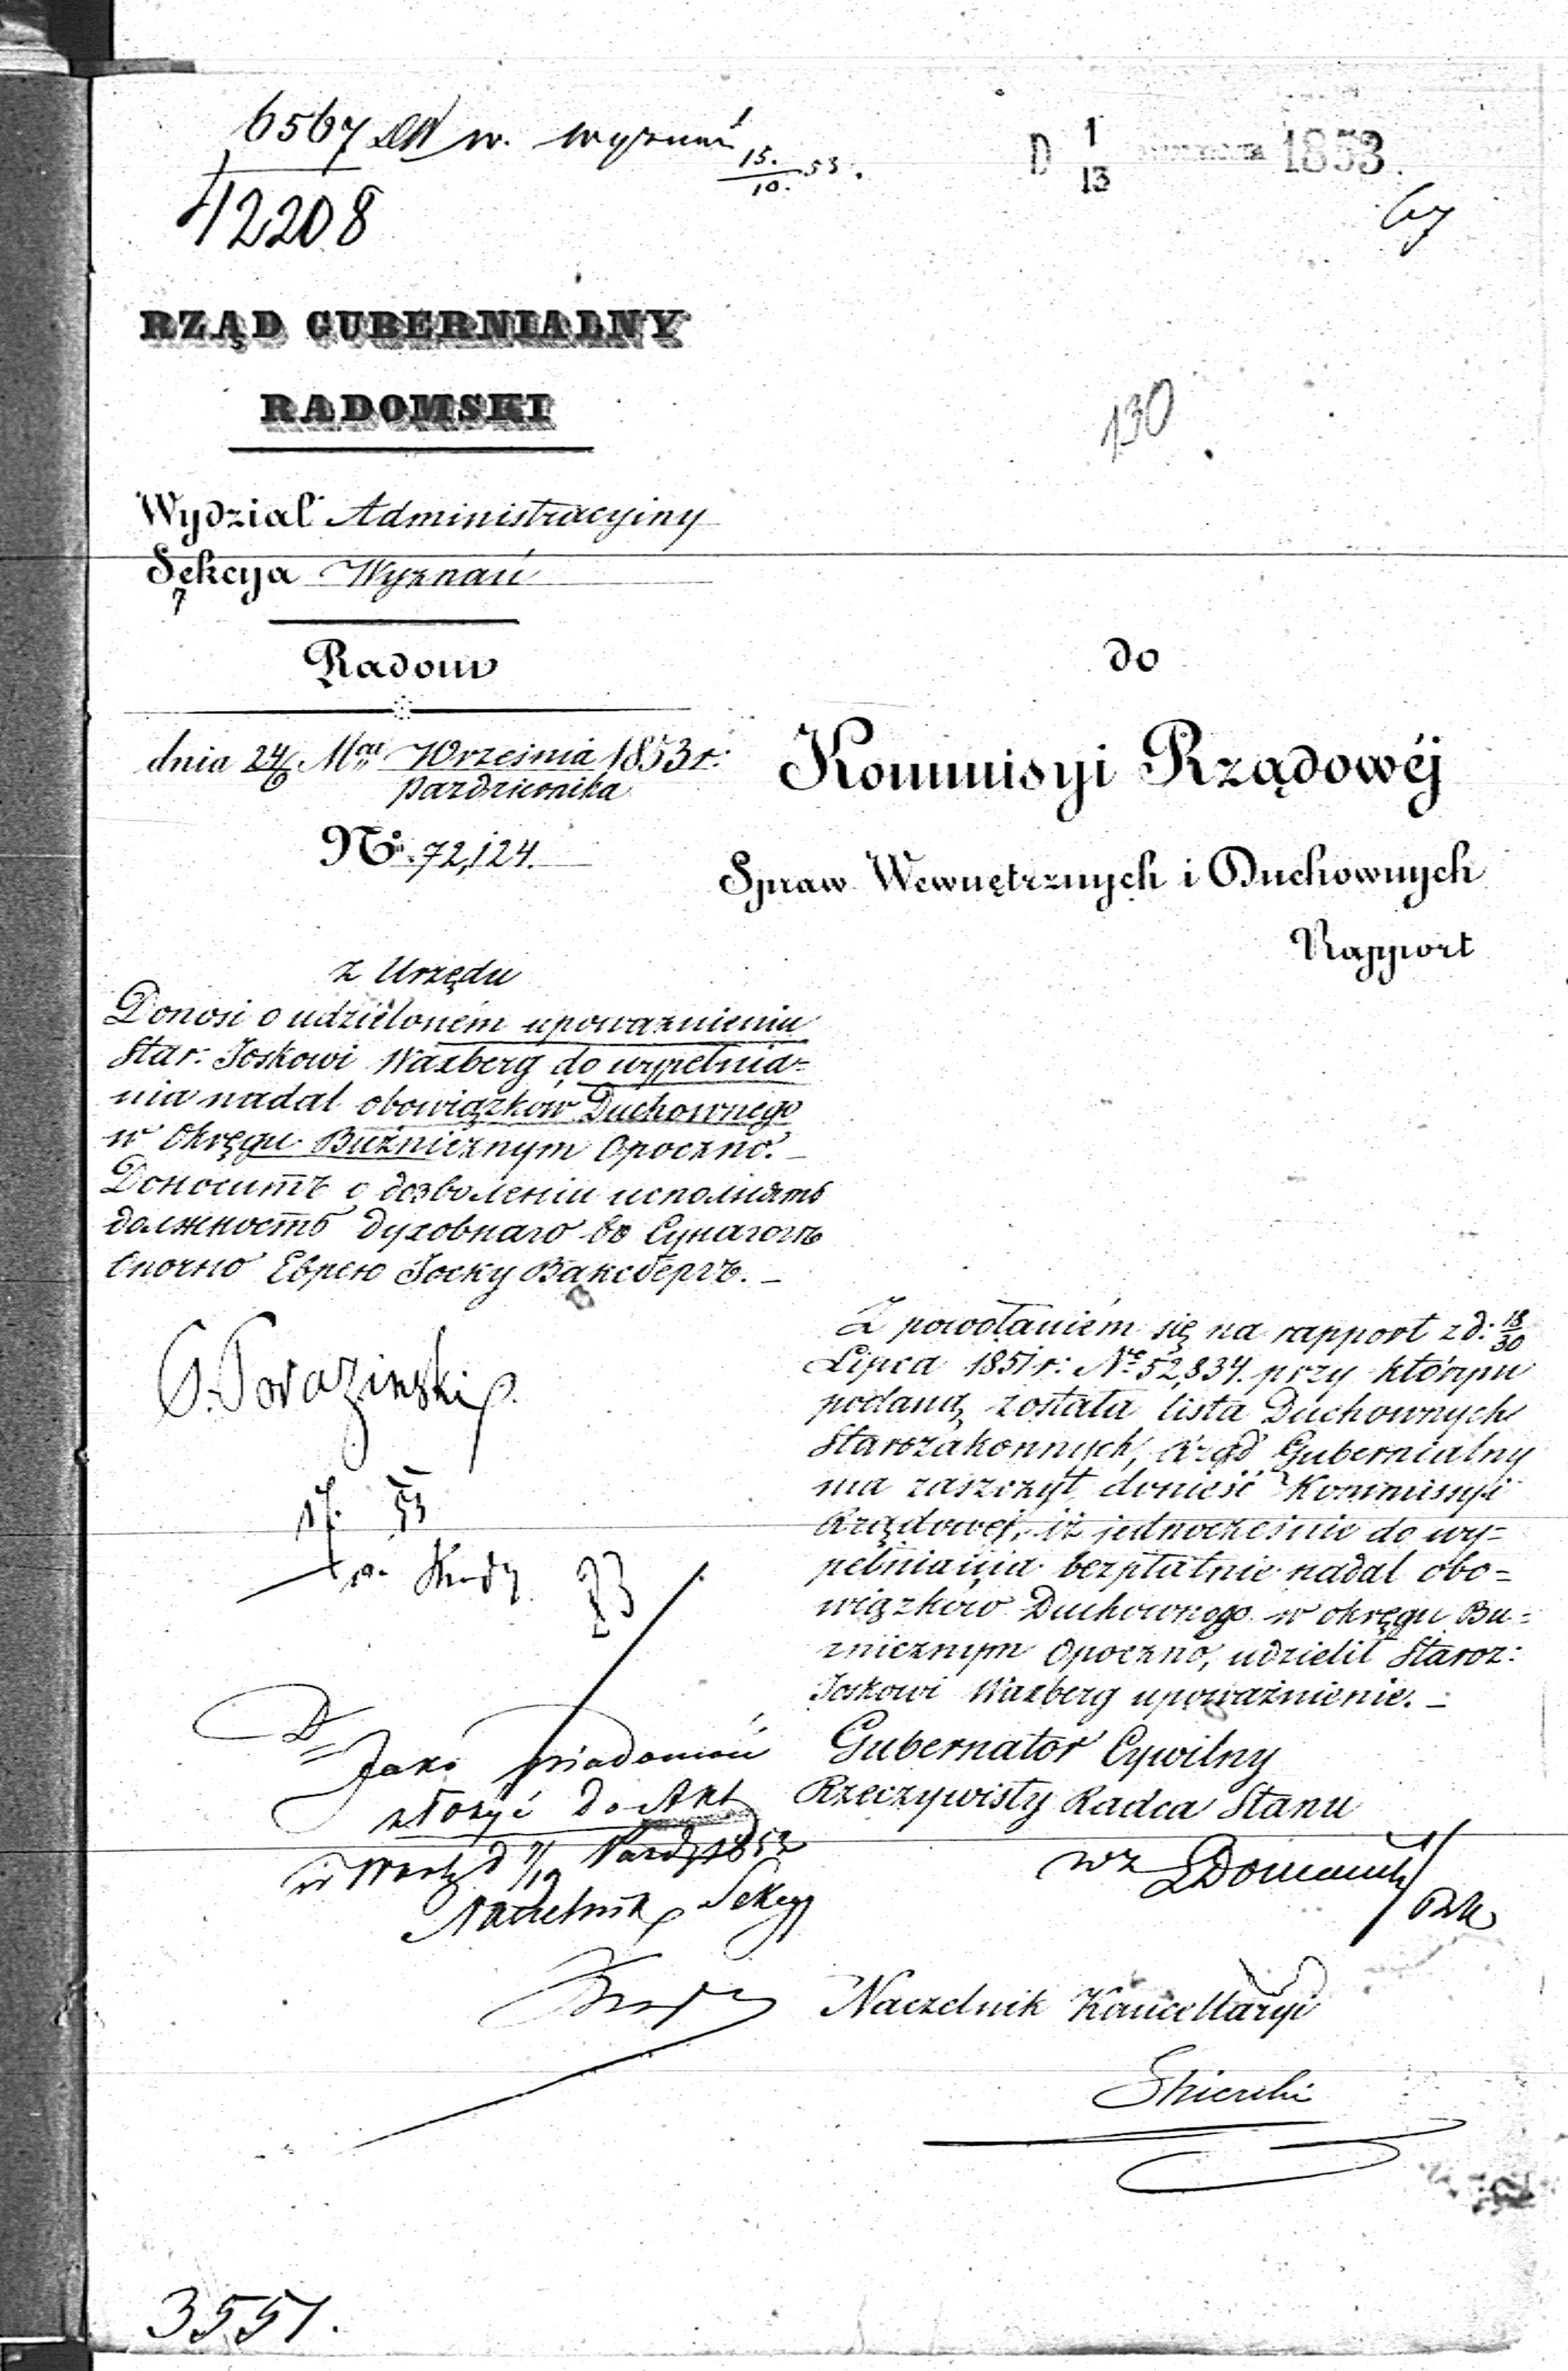 6567 w. wyznań
15./10. 53.
42208
D 1/13 1853.
67
RZĄD GUBERNIALNY
RADOMSKI
130
Wydział Administracyjny
Sekcya Wyznań
7
Radom
dnia 24/6 Mca Września 1853 r:
Października
No. 72,124.
do
Kommisyi Rządowéj
Spraw Wewnętrznych i Duchownych
Rapport
z Urzędu
Donosi o udzieloném upoważnieniu
Star: Joskowi Waxberg do wypełnia=
nia nadal obowiązków Duchownego
w Okręgu Buźnicznym Opoczno. _
Доноситъ о дозволеніи исполнять
должность духовнаго во Сунагогѣ
Опочно Еврею Іоску Ваксбергъ. _
17. 53
23
Z powołaniém się na rapport z d: 18/30
Lipca 1851 r: No 52,834. przy którym
podaną została lista Duchownych
Starozakonnych, Rząd Gubernialny
ma zaszczyt donieść Kommisyi
Rządowej, iż jednocześnie do wy=
pełniania bezpłatnie nadal obo=
wiązków Duchownego w okręgu Bu=
źnicznym Opoczno, udzielił Staroz:
Joskowi Waxberg upoważnienie. _
Gubernator Cywilny
Rzeczywisty Radca Stanu
wz
Jako wiadomość
złożyć do Akt
w d 7/19 Paźdz 1853
Naczelnik Sekcyi
Naczelnik Kancellaryi
3551.